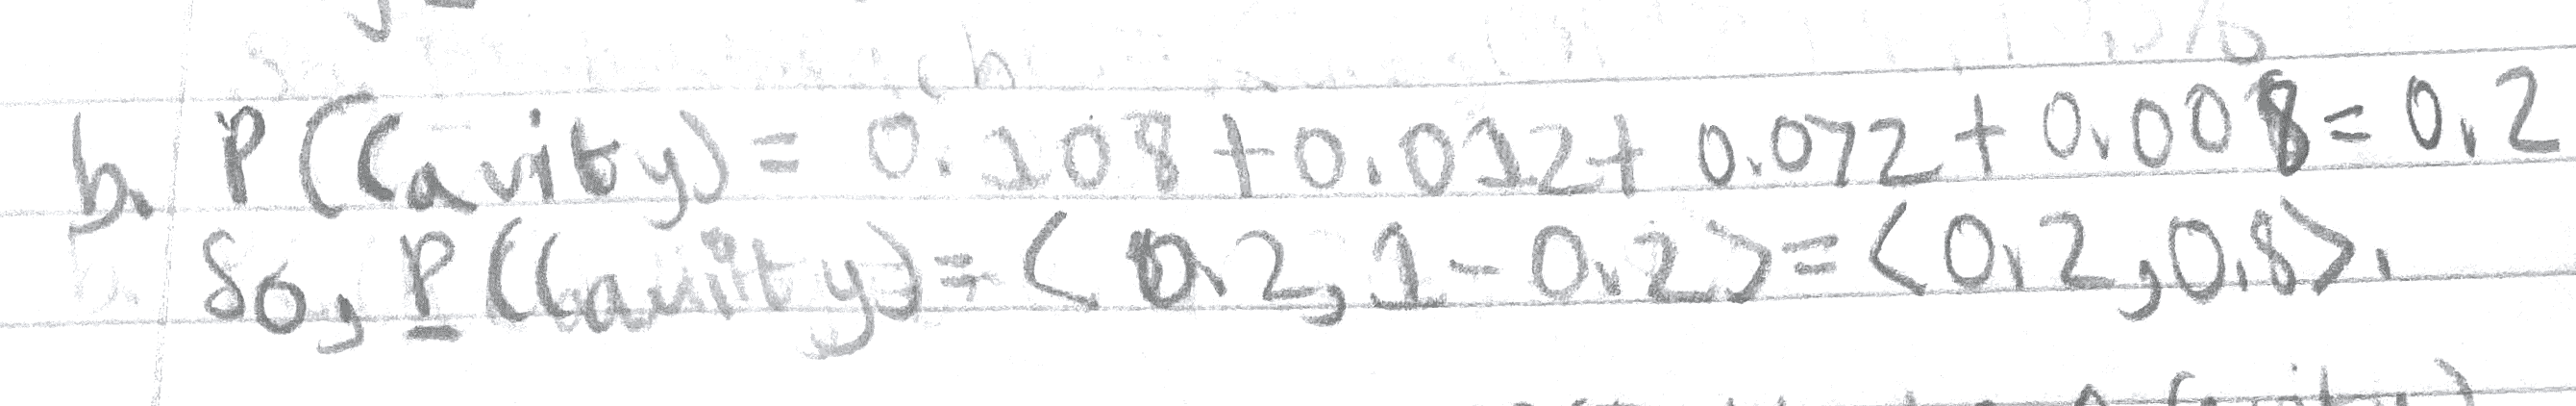 b. P(Cavity) = 0.108 + 0.012 + 0.072 + 0.008 = 0.2
So, P(Cavity) = ⟨0.2, 1 - 0.2⟩ = ⟨0.2, 0.8⟩.